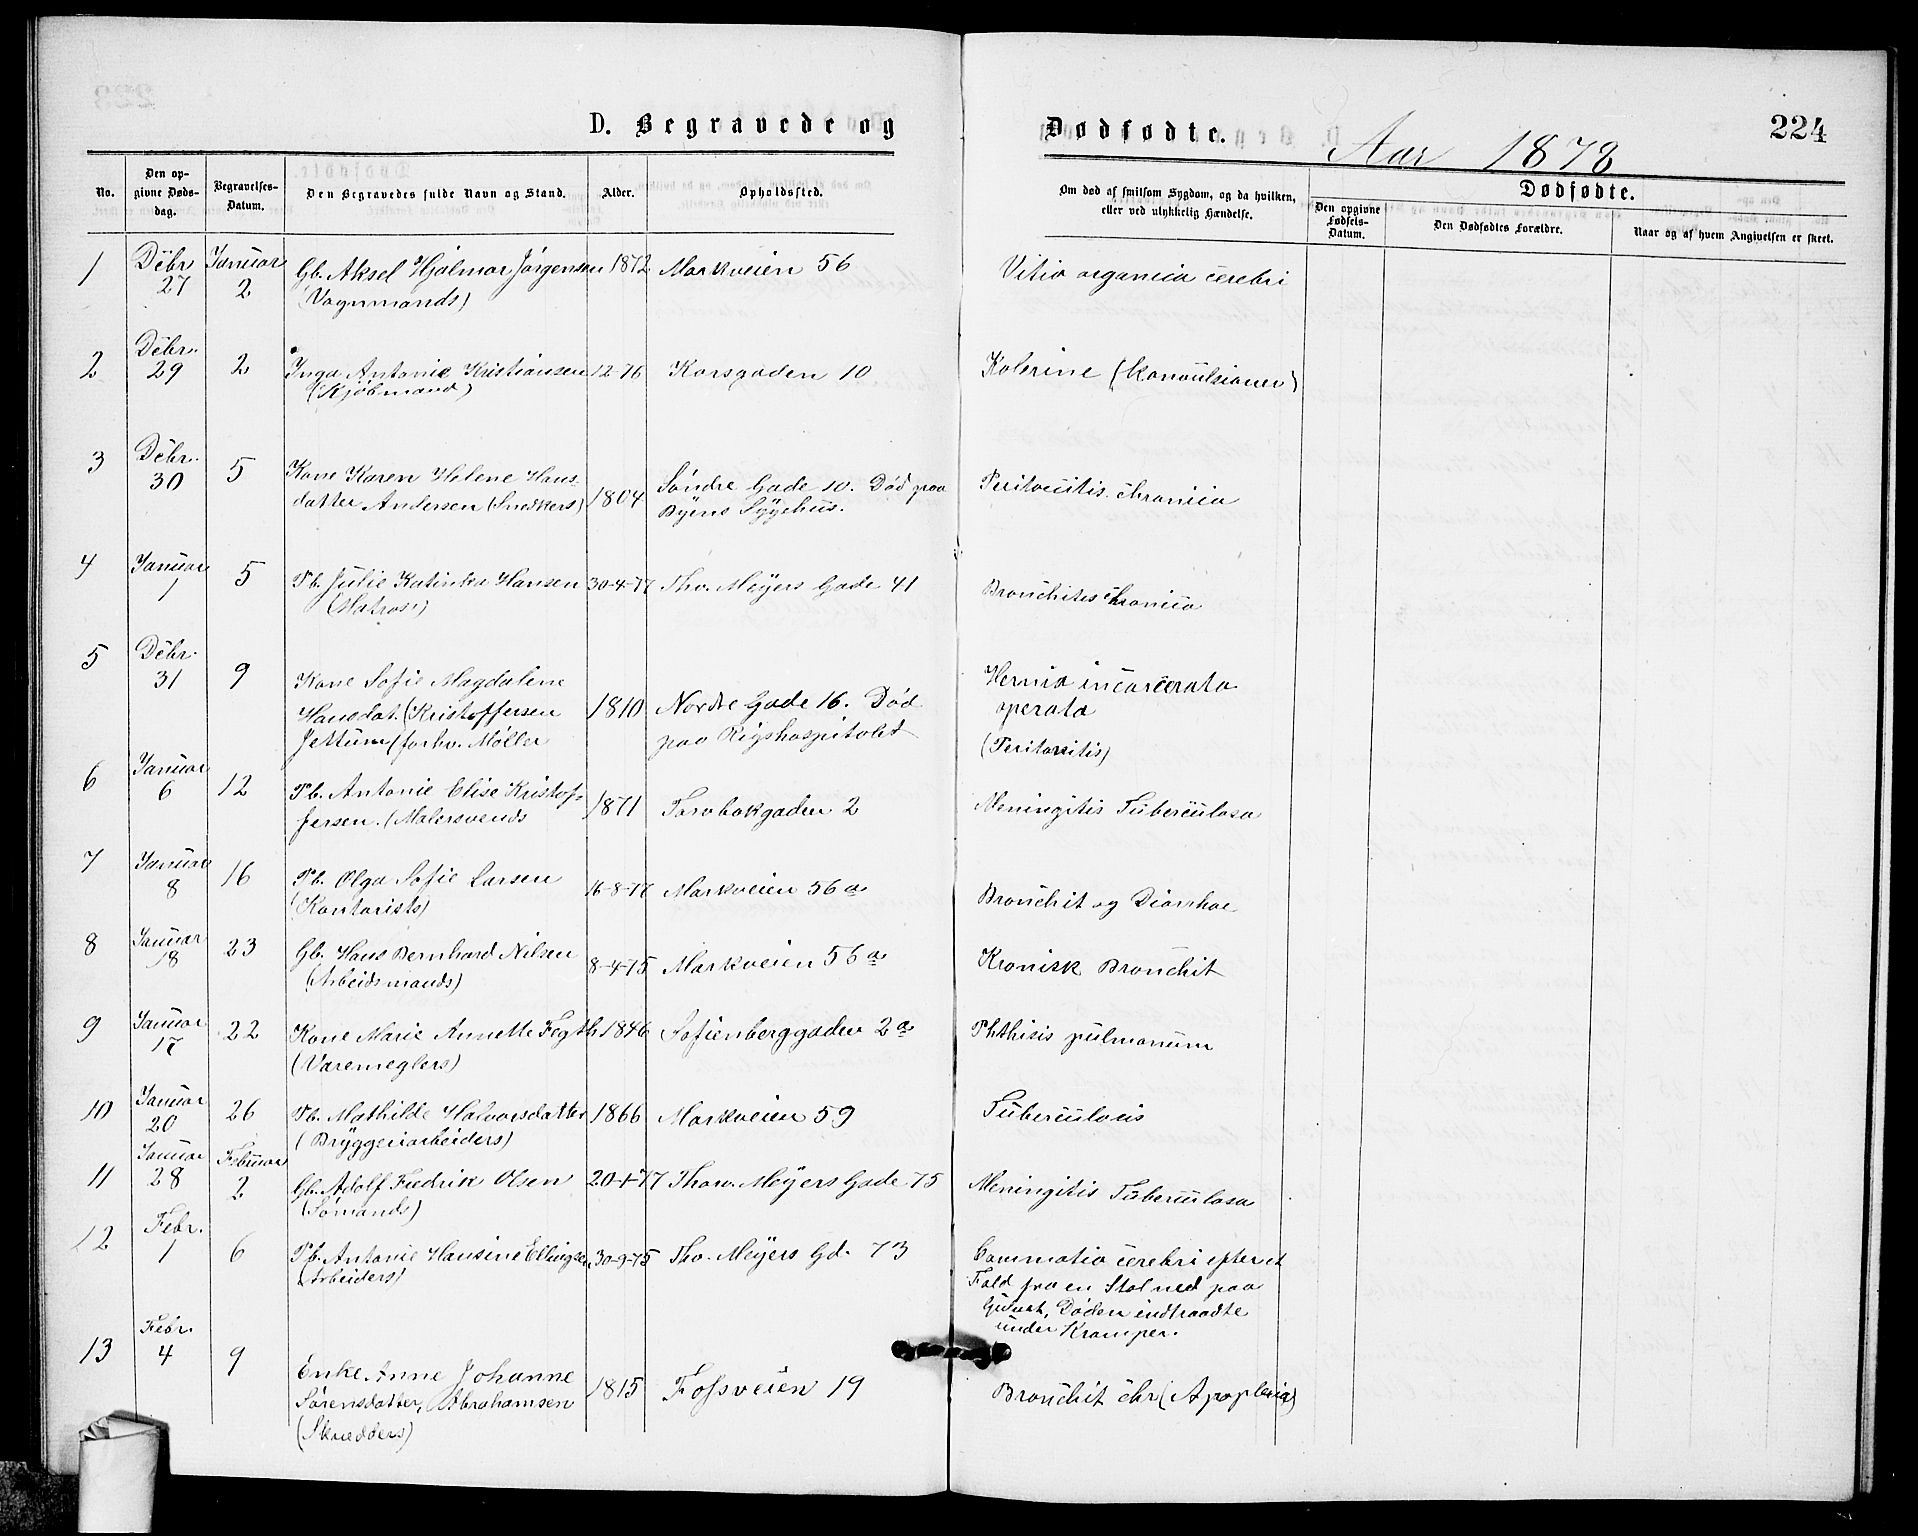 D. Begravede og Dødfødte.
Aar 1878
224
No.
Den opgivne Dødsdag.
Begravelses-Datum.
Den Begravedes fulde Navn og Stand.
Alder.
Opholdssted.
Om død af smitsom Sygdom, og da hvilken,
eller ved ulykkelig Hændelse.
Dødfødte.
Den opgivne Fødsels-Datum.
Den Dødfødtes Forældre.
Naar og af hvem Angivelsen er skeet.
1 Dcbr. 27 Januar 2 Gb. Aksel Hjalmar Jørgensen 1872 Markveien 56 Vitia organica cerebri
(Vognmands)
2 Dcbr. 29 2 Inga Antonie Kristiansen 12-76 Korsgaden 10 Kolerine (Konvulsioner)
(Kjøbmand)
3 Dcbr. 30 5 Kone Karen Helene Hans- 1804 Søndre Gade 10. Død paa Peritonitis chronica
datter Andersen (Snedkers) Byens Sygehus.
4 Januar 1 5 Pb. Julie Katinka Hansen 30-4-77 Thv. Meyers Gade 41 Bronchitis chronica
(Matros')
5 Dcbr. 31 9 Kone Sofie Magdalene Hernia incarcerata
Hansdat. (Kristoffersen 1810 Nordre Gade 16. Død operata
Jettum (forhv. Møller paa Rigshospitalet (Peritonitis)
6 Januar 6 12 Pb. Antonie Elise Kristof- 1871 Torvbakgaden 2 Meningitis Tuberculosa
fersen. (Malersvends
7 Januar 8 16 Pb. Olga Sofie Larsen 16-8-77 Markveien 56 a Bronchit og Diarrhoe
(Kontorists)
8 Januar 18 23 Gb. Hans Bernhard Nilsen 8-4-75 Markveien 56 a Kronisk Bronchit
(Arbeidsmands)
9 Januar 17 22 Kone Marie Annette Fogth 1846 Sofienberggaden 2 a Phthisis pulmonum
(Varemeglers)
10 Januar 20 26 Pb. Mathilde Halvorsdatter 1866 Markveien 59 Tuberculosis
(Bryggeriarbeiders)
11 Januar 28 Februar 2 Gb. Adolf Fredrik Olsen 20-1-77 Thorv. Meyers Gade 75 Meningitis Tuberculosa
(Sømands)
12 Febr. 1 6 Pb. Antonie Hansine Ellingsen 30-9-75 Thv. Meyers Gd. 73 Commotio cerebri efter et
(Arbeiders) Fald fra en Stol ned paa
Gulvet, Døden indtraadte
under Kramper.
13 Febr. 4 9 Enke Anne Johanne
Sørensdatter, Abrahamsen 1815 Fossveien 19 Bronchit chr (Apoplexia)
(Skrædders)